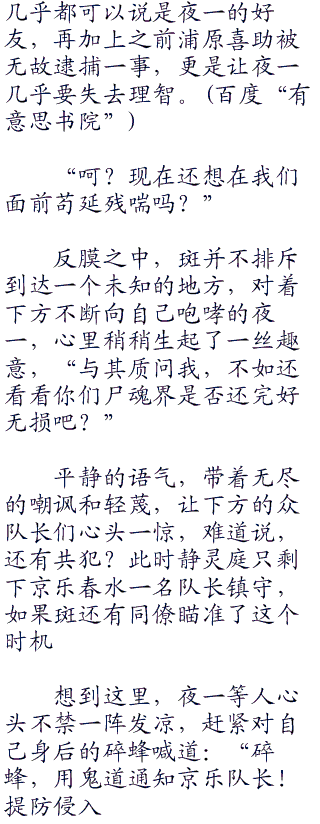 几乎都可以说是夜一的好
友，再加上之前浦原喜助被
无故逮捕一事，更是让夜一
几乎要失去理智。(百度“有
意思书院”)
“呵？现在还想在我们
面前苟延残喘吗？”
反膜之中，斑并不排斥
到达一个未知的地方，对着
下方不断向自己咆哮的夜
一，心里稍稍生起了一丝趣
意，“与其质问我，不如还
看看你们尸魂界是否还完好
无损吧？”
平静的语气，带着无尽
的嘲讽和轻蔑，让下方的众
队长们心头一惊，难道说，
还有共犯？此时静灵庭只剩
下京乐春水一名队长镇守，
如果斑还有同僚瞄准了这个
时机
想到这里，夜一等人心
头不禁一阵发凉，赶紧对自
己身后的碎蜂喊道：“碎
蜂，用鬼道通知京乐队长！
提防侵入